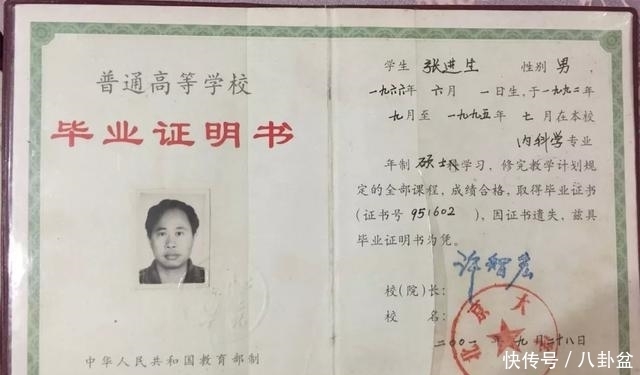 普通高等学校
毕业证明书
中华人民共和国教育部制
学生 张进生 性别 男
一九六六年 六月 一日生,于一九九二年
九月至 一九九五年 七月在本校
内科学专业
年制 硕士科学习,修完教学计划规
定的全部课程,成绩合格,取得毕业证书
(证书号 951602),因证书遗失,兹具
毕业证明书为凭。
许智宏
校(院)长:
校 名:
北京大
二〇〇一年九月二十八日
快传号 / 八卦盆